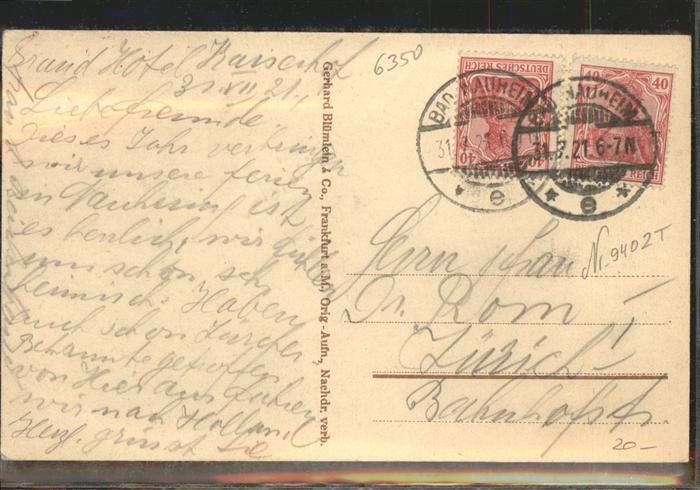 Grand Hotel Kaiserhof
31.VII.21.
Liebe Freunde
Dieses Jahr verbringen
wir unsere Ferien
in Nauheim, ist
es herrlich, wir fühlen
uns schon sehr
heimisch. Haben
auch schon Zürcher
Bekannte getroffen
von Hier aus
wir nach Holland
Herzl. grüsst Sie
Gerhard Blümlein & Co., Frankfurt a. M., Orig.-Aufn., Nachdr. verb.
6350
DEUTSCHES REICH
40 40
40 40
REICH
BAD NAUHEIM
31.
e
BAD NAUHEIM
31.8.21.6-7N
e
Nr. 9402T
Herrn
Dr. Rom
Zürich
Bahnhofst
20-